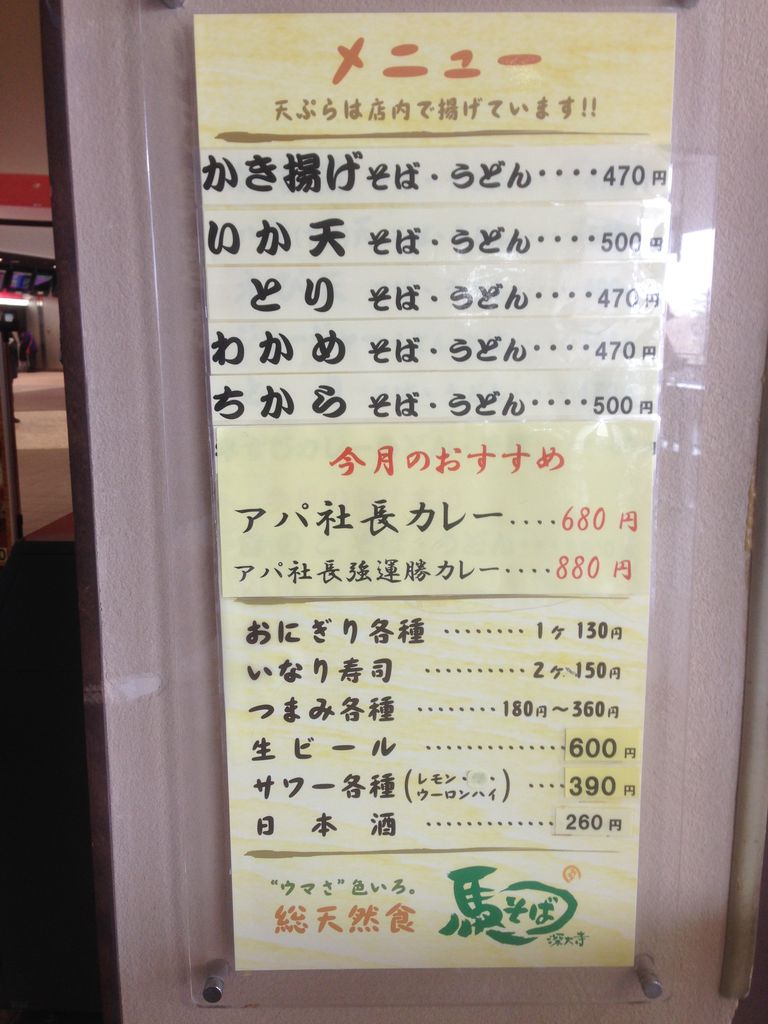 メニュー
天ぷらは店内で揚げています!!
かき揚げ そば・うどん････470円
いか天 そば・うどん････500円
とり そば・うどん････470円
わかめ そば・うどん････470円
ちから そば・うどん････500円
今月のおすすめ
アパ社長カレー....680円
アパ社長強運勝カレー....880円
おにぎり各種 ････････1ケ 130円
いなり寿司 ･･････････2ケ 150円
つまみ各種 ････････180円～360円
生ビール ･･････････････600円
サワー各種(レモン・ ・ウーロンハイ) ････390円
日本酒 ･･････････････260円
“ウマさ”色いろ。
総天然食
馬そば
深大寺